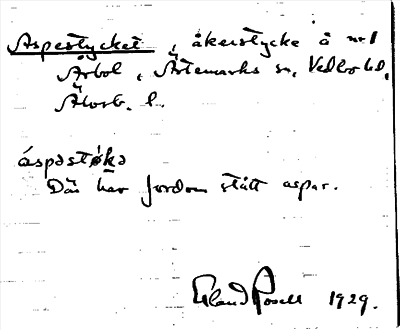 Aspestycket, åkerstycke å nr 1
Årbol, Ärtemarks sn, Vedbo hd,
Älvsb. l.
áspəstø̀kə
Där har fordom stått aspar.
Erland Rosell 1929.